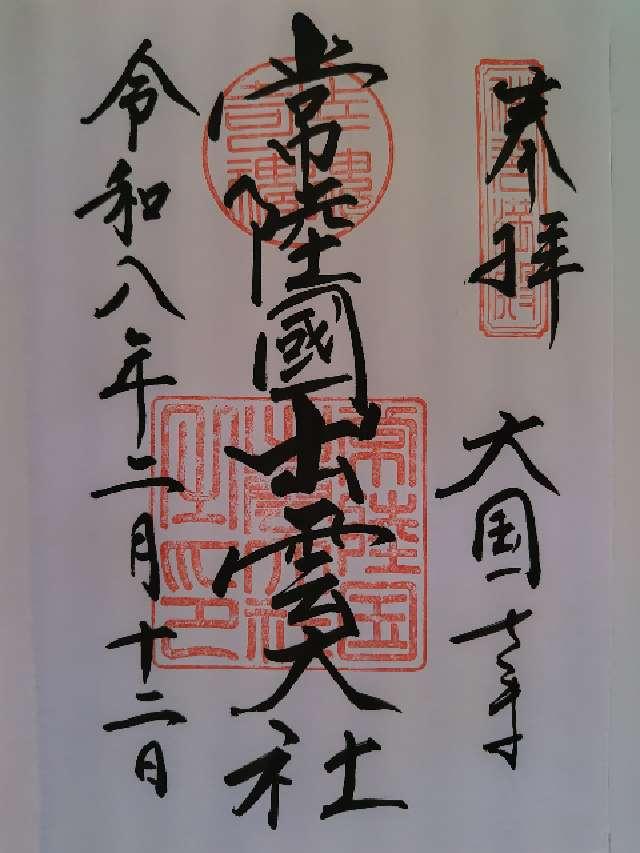 奉拝
大国
常陸國出雲大社
令和八年二月十二日
常陸国